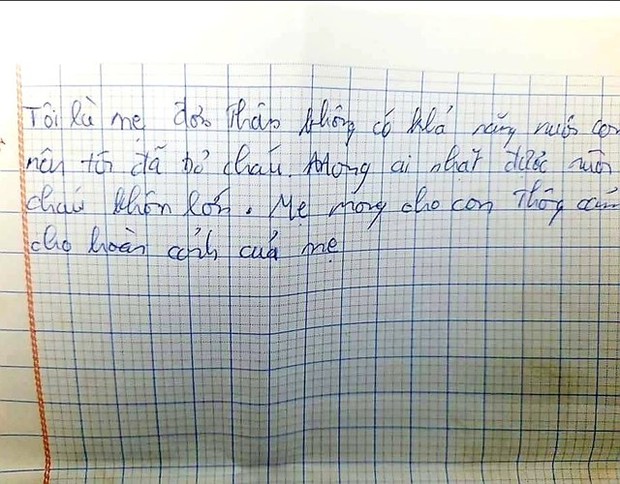 Tôi là mẹ đơn thân không có khả năng nuôi con
nên tôi đã bỏ cháu. Mong ai nhặt được nuôi
cháu khôn lớn. Mẹ mong cho con thông cảm
cho hoàn cảnh của mẹ